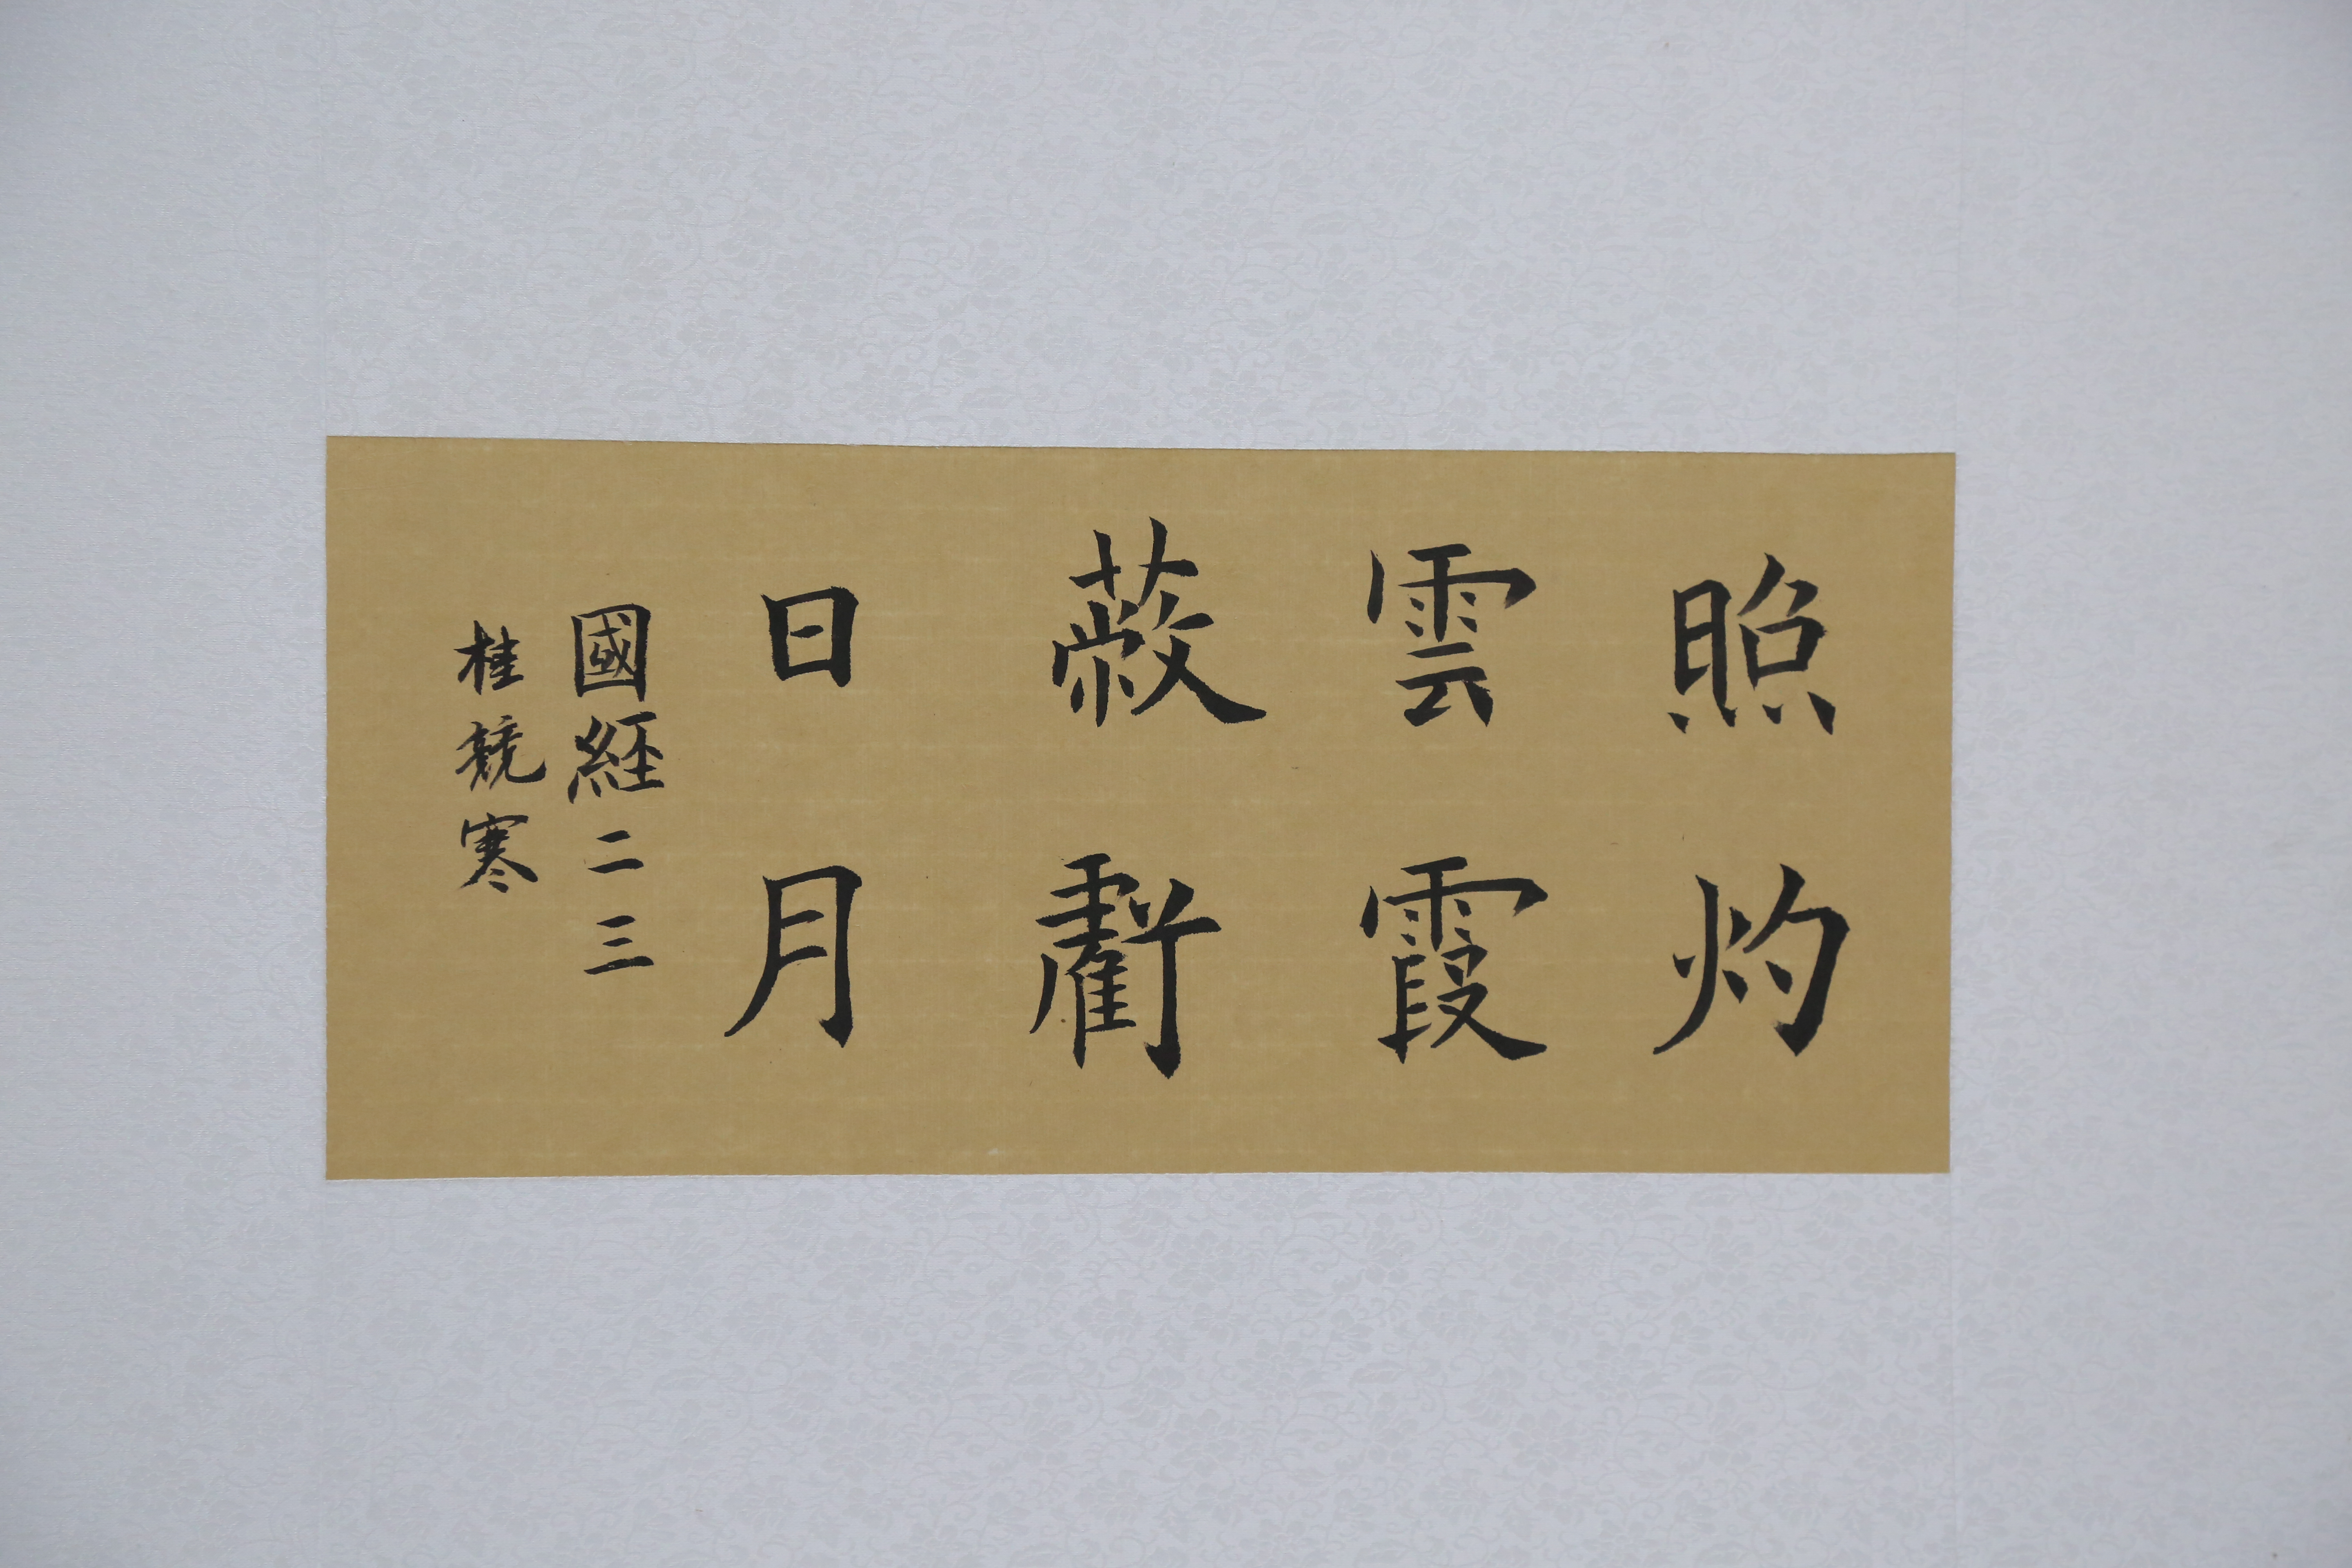 照灼
雲霞
蔽虧
日月
國經二三
桂競寒